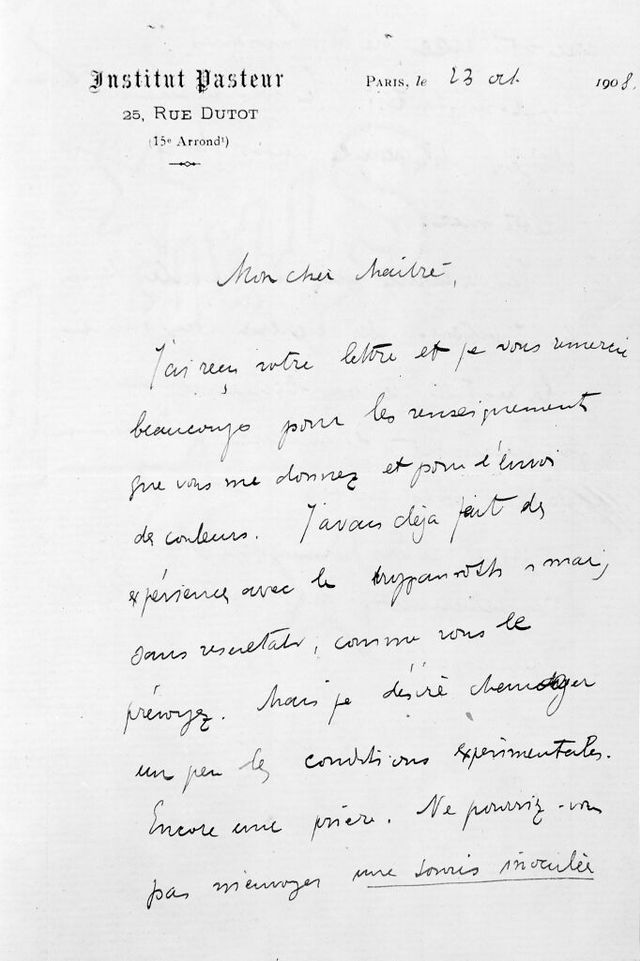 Institut Pasteur
25, RUE DUTOT
(15e Arrondt)
PARIS, le 23 oct 1908.
Mon cher Maître,
J'ai reçu votre lettre et je vous remercie
beaucoup pour les renseignements
que vous me donnez et pour l'envoi
des couleurs. J'avais déja fait des
expériences avec le trypanroth, mais
sans resultats, comme vous le
prévoyez. Mais je désire changer
un peu les conditions expérimentales.
Encore une prière. Ne pourriez-vous
pas m'envoyer une souris inoculée